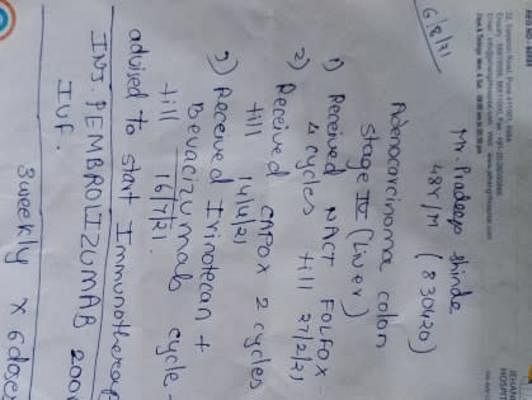 6/8/21
Mr. Pradeep Shinde
48Y/M (830420)
Adenocarcinoma colon
Stage IV (Liver)
1) Received NACT FOLFOX -
4 cycles till 27/2/21
2) Received CAPOX 2 cycles
till 14/4/21
3) Received Irinotecan +
Bevacizumab cycle -
till 16/7/21.
advised to start Immunotherap
INJ. PEMBROLIZUMAB 200m
IVF.
3 weekly x 6 doses